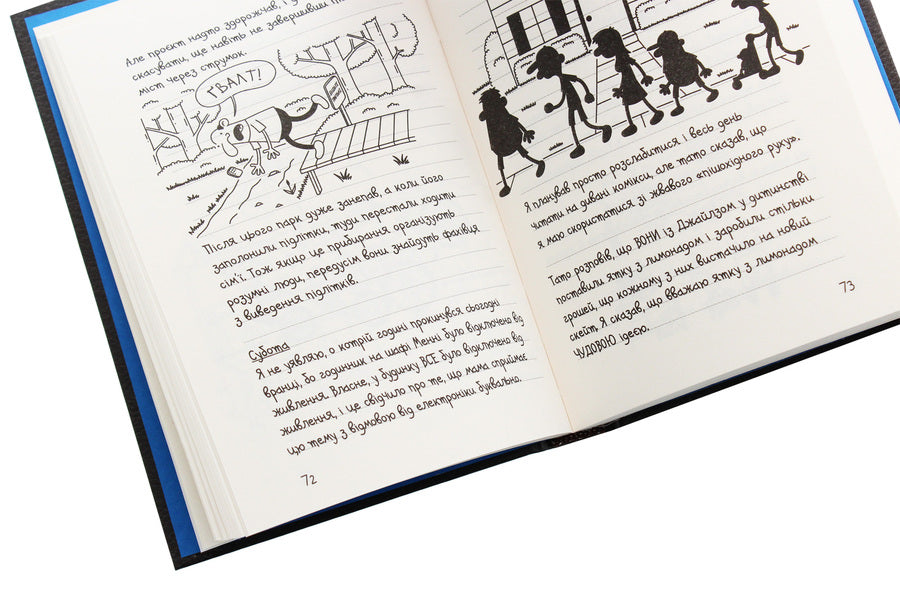 Але проєкт надто здорожчав, і
скасувати, ще навіть не завершивши
міст через струмок.
ҐВАЛТ!
Після цього парк дуже занепав, а коли його
заполонили підлітки, туди перестали ходити
сім'ї. Тож якщо це прибирання організують
розумні люди, передусім вони знайдуть фахівця
з виведення підлітків.
Субота
Я не уявляю, о котрій годині прокинувся сьогодні
вранці, бо годинник на шафі Менні було відключено від
живлення. Власне, у будинку ВСЕ було відключено від
живлення, і це свідчило про те, що мама сприймає
цю тему з відмовою від електроніки буквально.
72
Я планував просто розслабитися і весь день
читати на дивані комікси, але тато сказав, що
я маю скористатися зі жвавого «пішохідного руху».
Тато розповів, що ВОНИ із Джайлзом у дитинстві
поставили ятку з лимонадом і заробили стільки
грошей, що кожному з них вистачило на новий
скейт. Я сказав, що вважаю ятку з лимонадом
ЧУДОВОЮ ідеєю.
73